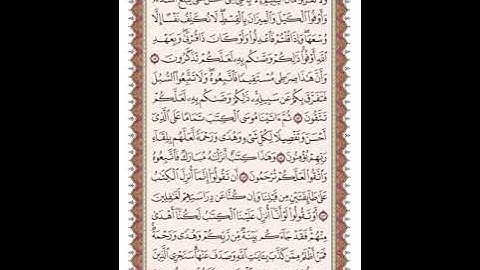 وَلَا تَقْرَبُوا۟ مَالَ ٱلْيَتِيمِ إِلَّا بِٱلَّتِى هِىَ أَحْسَنُ حَتَّىٰ يَبْلُغَ أَشُدَّهُۥ
وَأَوْفُوا۟ ٱلْكَيْلَ وَٱلْمِيزَانَ بِٱلْقِسْطِ لَا نُكَلِّفُ نَفْسًا إِلَّا
وُسْعَهَا وَإِذَا قُلْتُمْ فَٱعْدِلُوا۟ وَلَوْ كَانَ ذَا قُرْبَىٰ وَبِعَهْدِ
ٱللَّهِ أَوْفُوا۟ ذَٰلِكُمْ وَصَّىٰكُم بِهِۦ لَعَلَّكُمْ تَذَكَّرُونَ
وَأَنَّ هَٰذَا صِرَٰطِى مُسْتَقِيمًا فَٱتَّبِعُوهُ وَلَا تَتَّبِعُوا۟ ٱلسُّبُلَ
فَتَفَرَّقَ بِكُمْ عَن سَبِيلِهِۦ ذَٰلِكُمْ وَصَّىٰكُم بِهِۦ لَعَلَّكُمْ
تَتَّقُونَ ثُمَّ ءَاتَيْنَا مُوسَى ٱلْكِتَٰبَ تَمَامًا عَلَى ٱلَّذِىٓ
أَحْسَنَ وَتَفْصِيلًا لِّكُلِّ شَىْءٍ وَهُدًى وَرَحْمَةً لَّعَلَّهُم بِلِقَآءِ
رَبِّهِمْ يُؤْمِنُونَ وَهَٰذَا كِتَٰبٌ أَنزَلْنَٰهُ مُبَارَكٌ فَٱتَّبِعُوهُ
وَٱتَّقُوا۟ لَعَلَّكُمْ تُرْحَمُونَ أَن تَقُولُوٓا۟ إِنَّمَآ أُنزِلَ ٱلْكِتَٰبُ
عَلَىٰ طَآئِفَتَيْنِ مِن قَبْلِنَا وَإِن كُنَّا عَن دِرَاسَتِهِمْ لَغَٰفِلِينَ
أَوْ تَقُولُوا۟ لَوْ أَنَّآ أُنزِلَ عَلَيْنَا ٱلْكِتَٰبُ لَكُنَّآ أَهْدَىٰ
مِنْهُمْ فَقَدْ جَآءَكُم بَيِّنَةٌ مِّن رَّبِّكُمْ وَهُدًى وَرَحْمَةٌ
فَمَنْ أَظْلَمُ مِمَّن كَذَّبَ بِـَٔايَٰتِ ٱللَّهِ وَصَدَفَ عَنْهَا سَنَجْزِى ٱلَّذِينَ